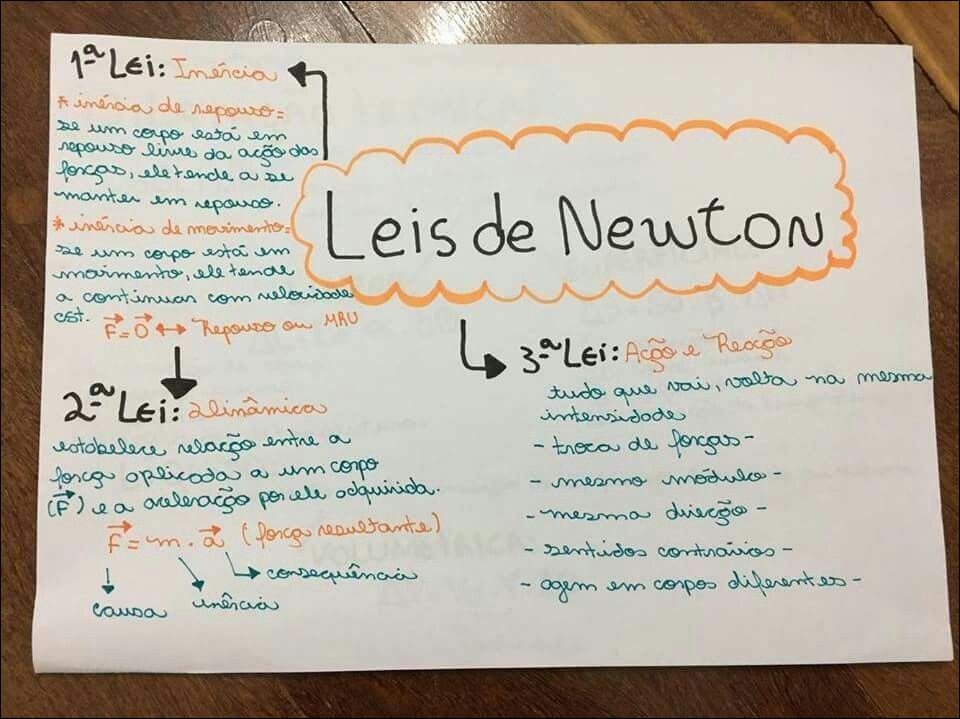 Leis de Newton
1ª Lei: Inércia
* inércia de repouso =
se um corpo está em
repouso livre da ação das
forças, ele tende a se
manter em repouso.
* inércia de movimento =
se um corpo está em
movimento, ele tende
a continuar com velocidade
cst.
F = 0 ↔ Repouso ou MRU
2ª Lei: Dinâmica
estabelece relação entre a
força aplicada a um corpo
(F) e a aceleração por ele adquirida.
F = m . a (força resultante)
consequência
causa inércia
3ª Lei: Ação e Reação
tudo que vai, volta na mesma
intensidade
- troca de forças -
- mesmo módulo -
- mesma direção -
- sentidos contrários -
- agem em corpos diferentes -